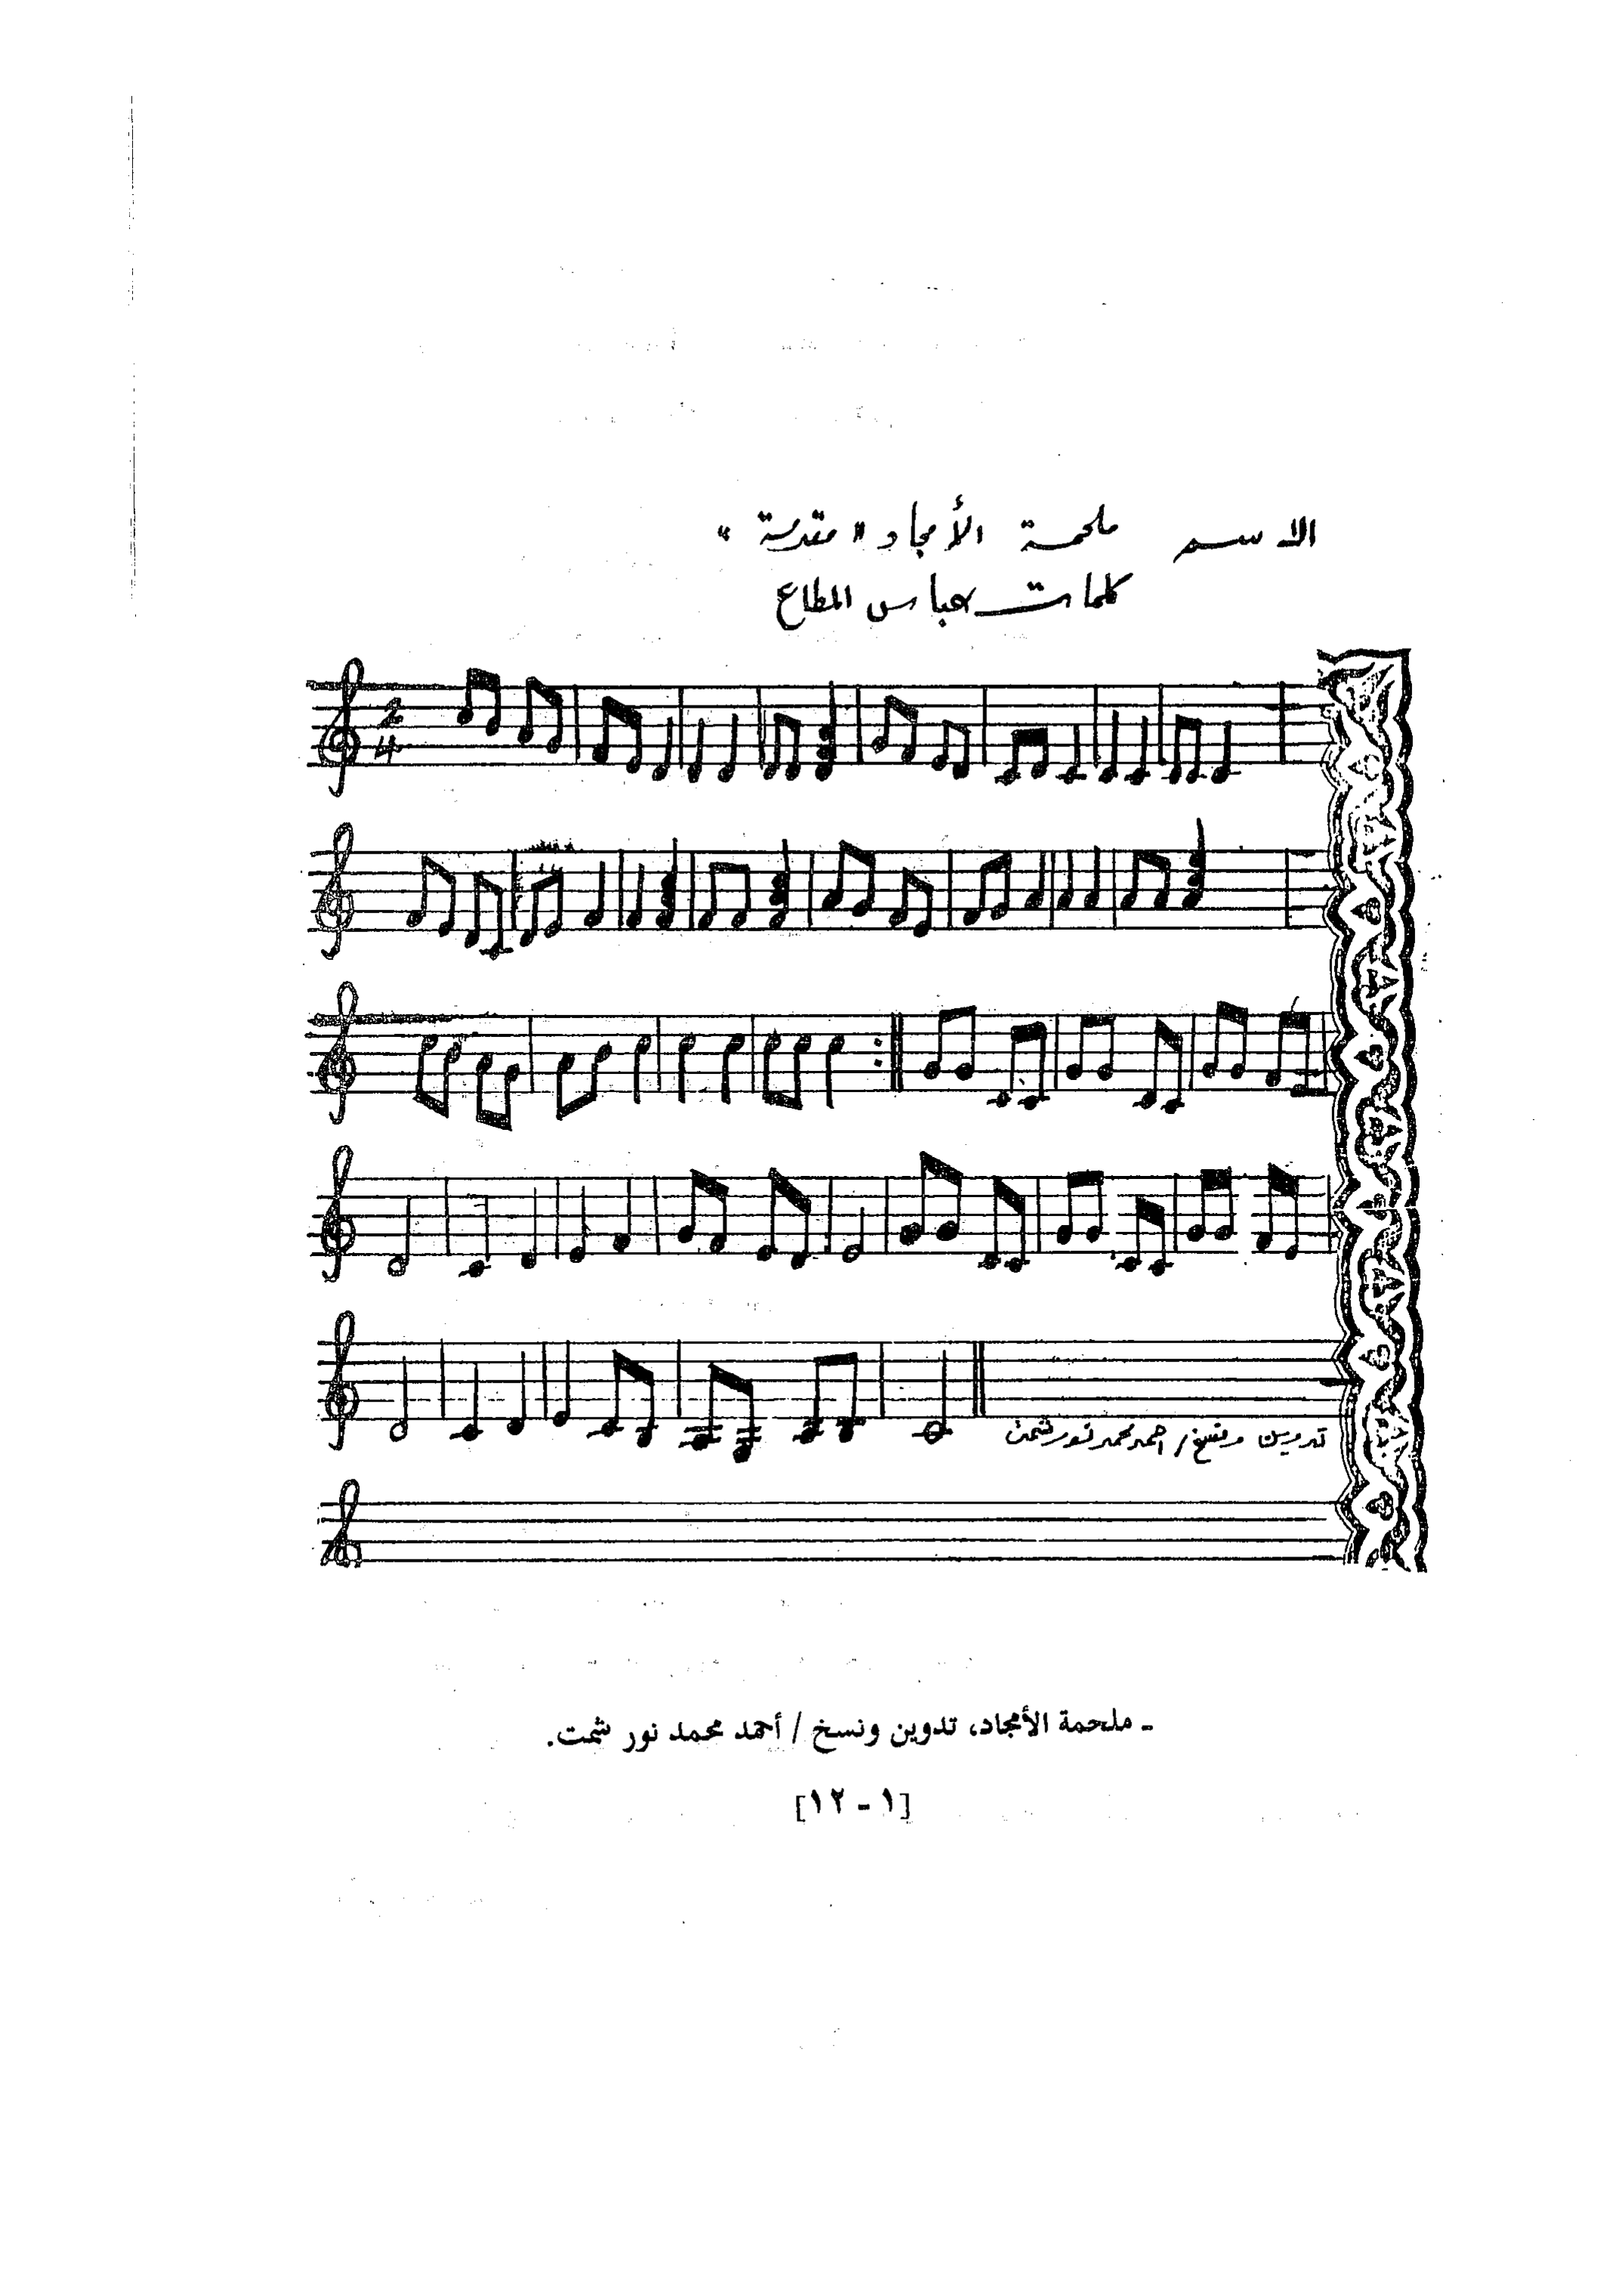 الاسم ملحمة الأمجاد «مقدمة»
كلمات عباس المطاع
2
4
تدوين ونسخ / احمد محمد نور شمت
- ملحمة الأمجاد، تدوين ونسخ / أحمد محمد نور شمت.
[١ - ١٢]